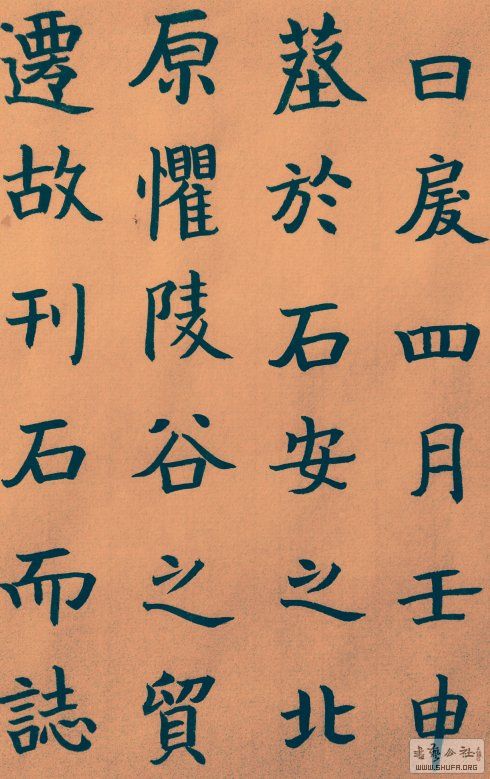 日四月壬申
塟於石安之北
原懼陵谷之貿
遷故刊石而誌
書藝公社
WWW.SHUFA.ORG